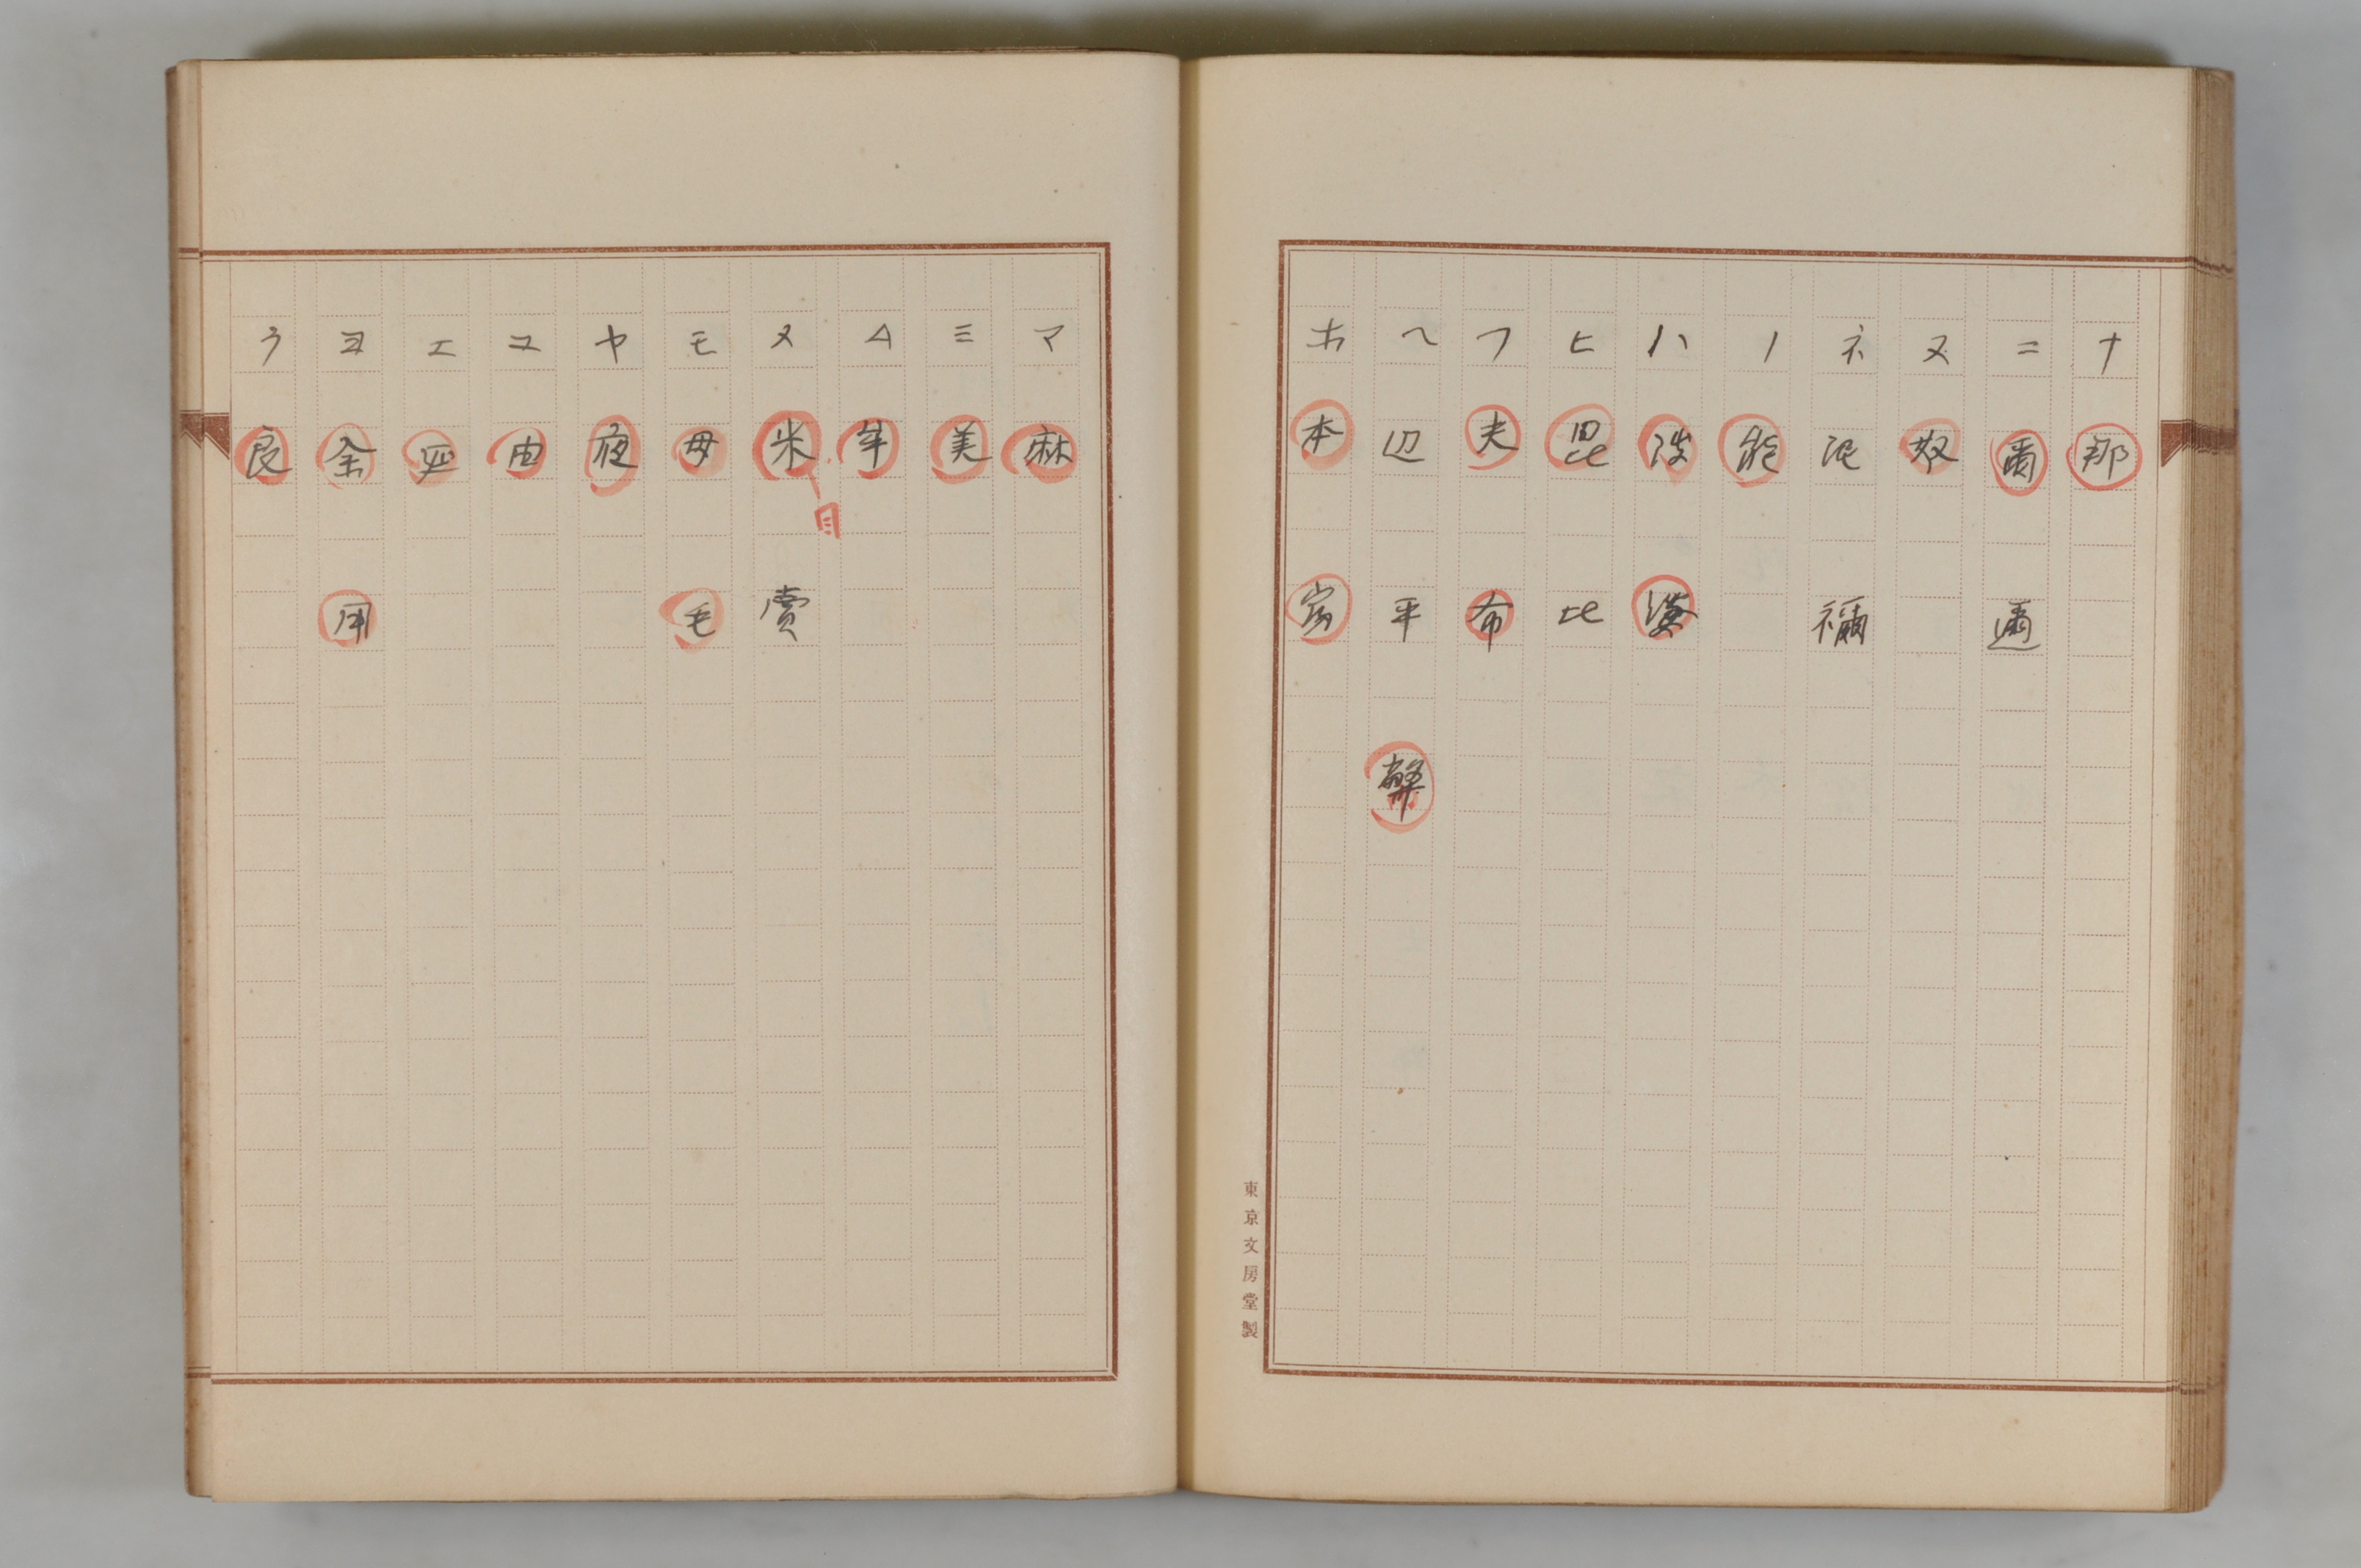 ナ 那
ニ 爾 邇
ヌ 奴
ネ 泥 禰
ノ 能
ハ 波 婆
ヒ 毘 比
フ 夫 布
ヘ 辺 平 弊
ホ 本 富
東京文房堂製
マ 麻
ミ 美
ム 牟
メ 米 目 賣
モ 母 毛
ヤ 夜
ユ 由
エ 延
ヨ 余 用
ラ 良